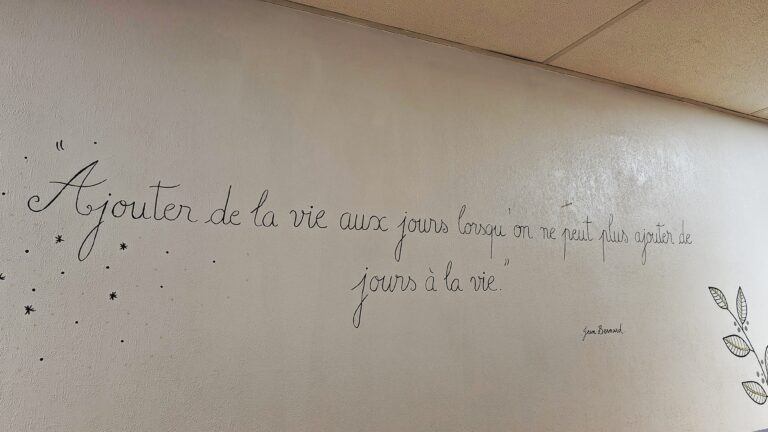 "Ajouter de la vie aux jours lorsqu'on ne peut plus ajouter de
jours à la vie."
Jean Bernard